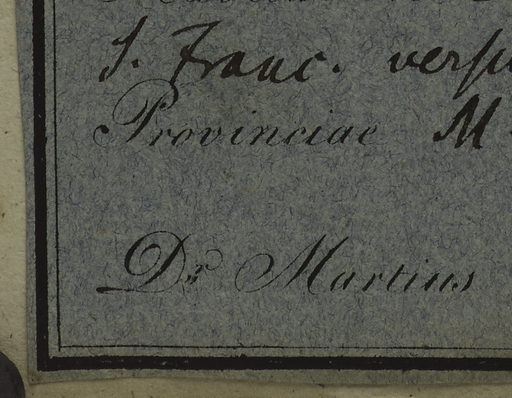 S. Franc. vers
Provinciae M
Dr Martius